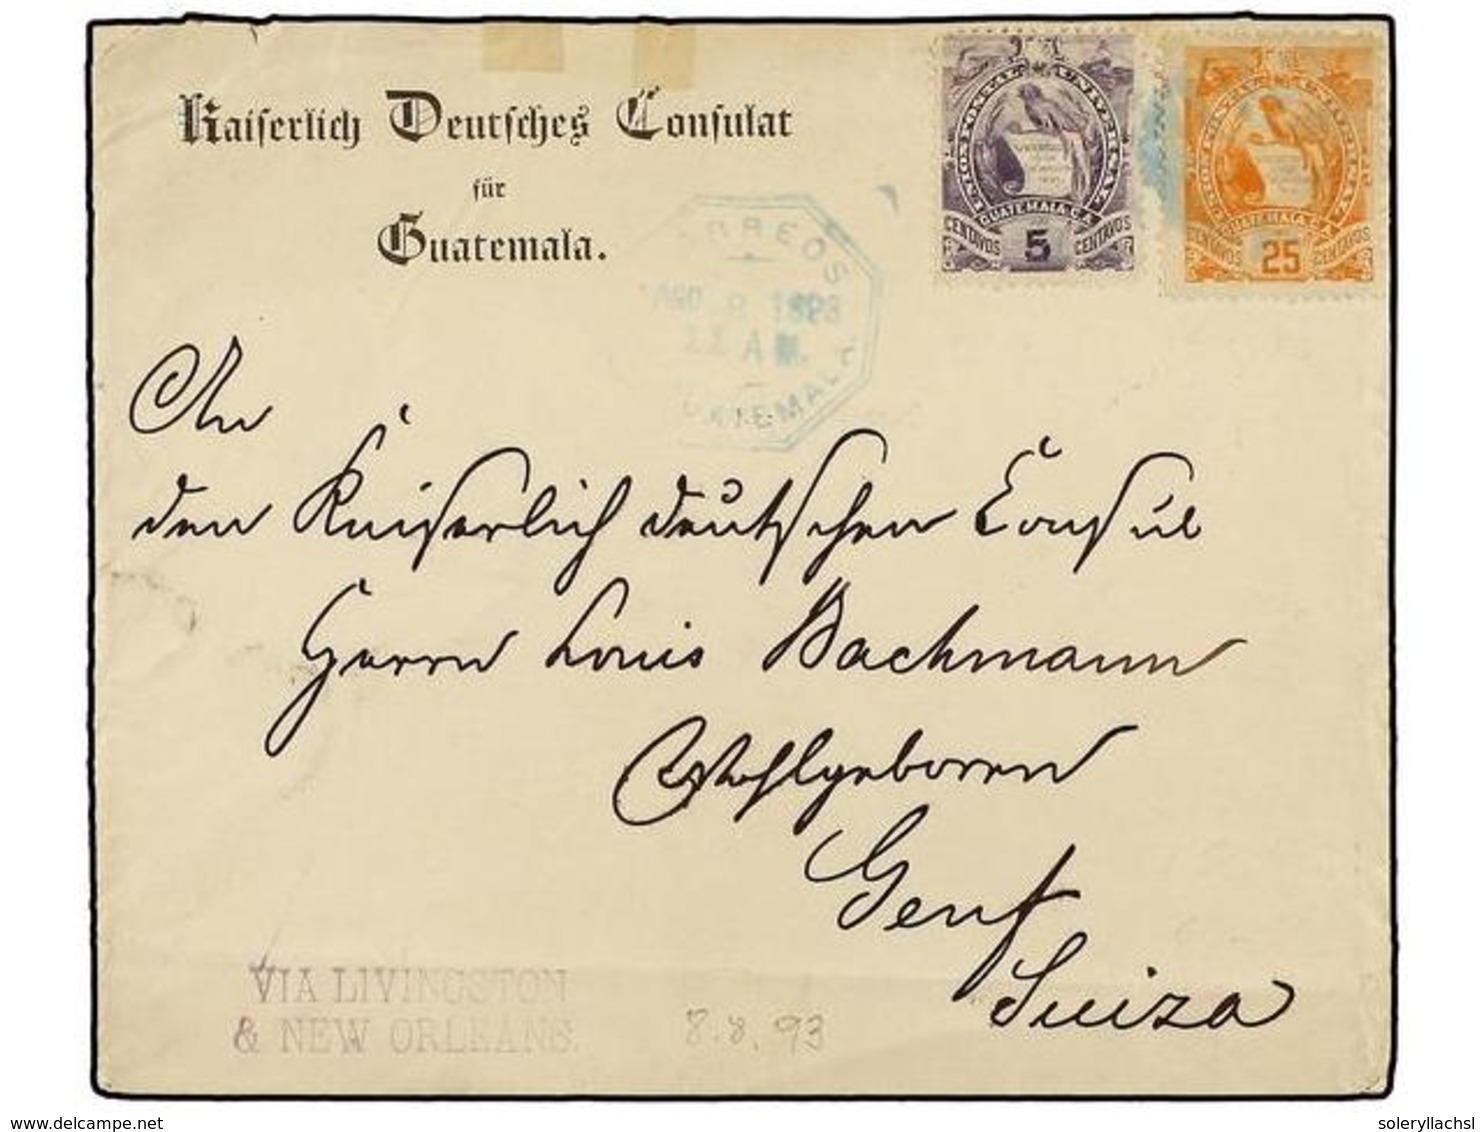 Kaiserlich Deutsches Consulat
für
Guatemala.
UNION POSTAL UNIVERSAL
GUATEMALA C.A.
CENTAVOS 5 CENTAVOS
UNION POSTAL UNIVERSAL
GUATEMALA C.A.
CENTAVOS 25 CENTAVOS
CORREOS
AGO 8 1893
11 AM.
GUATEMALA
An
den Kaiserlich deutschen Consul
Herrn Louis Bachmann
Wohlgeboren
Genf
Suiza
VIA LIVINGSTON
& NEW ORLEANS.
8.8.93
soleryllachsl